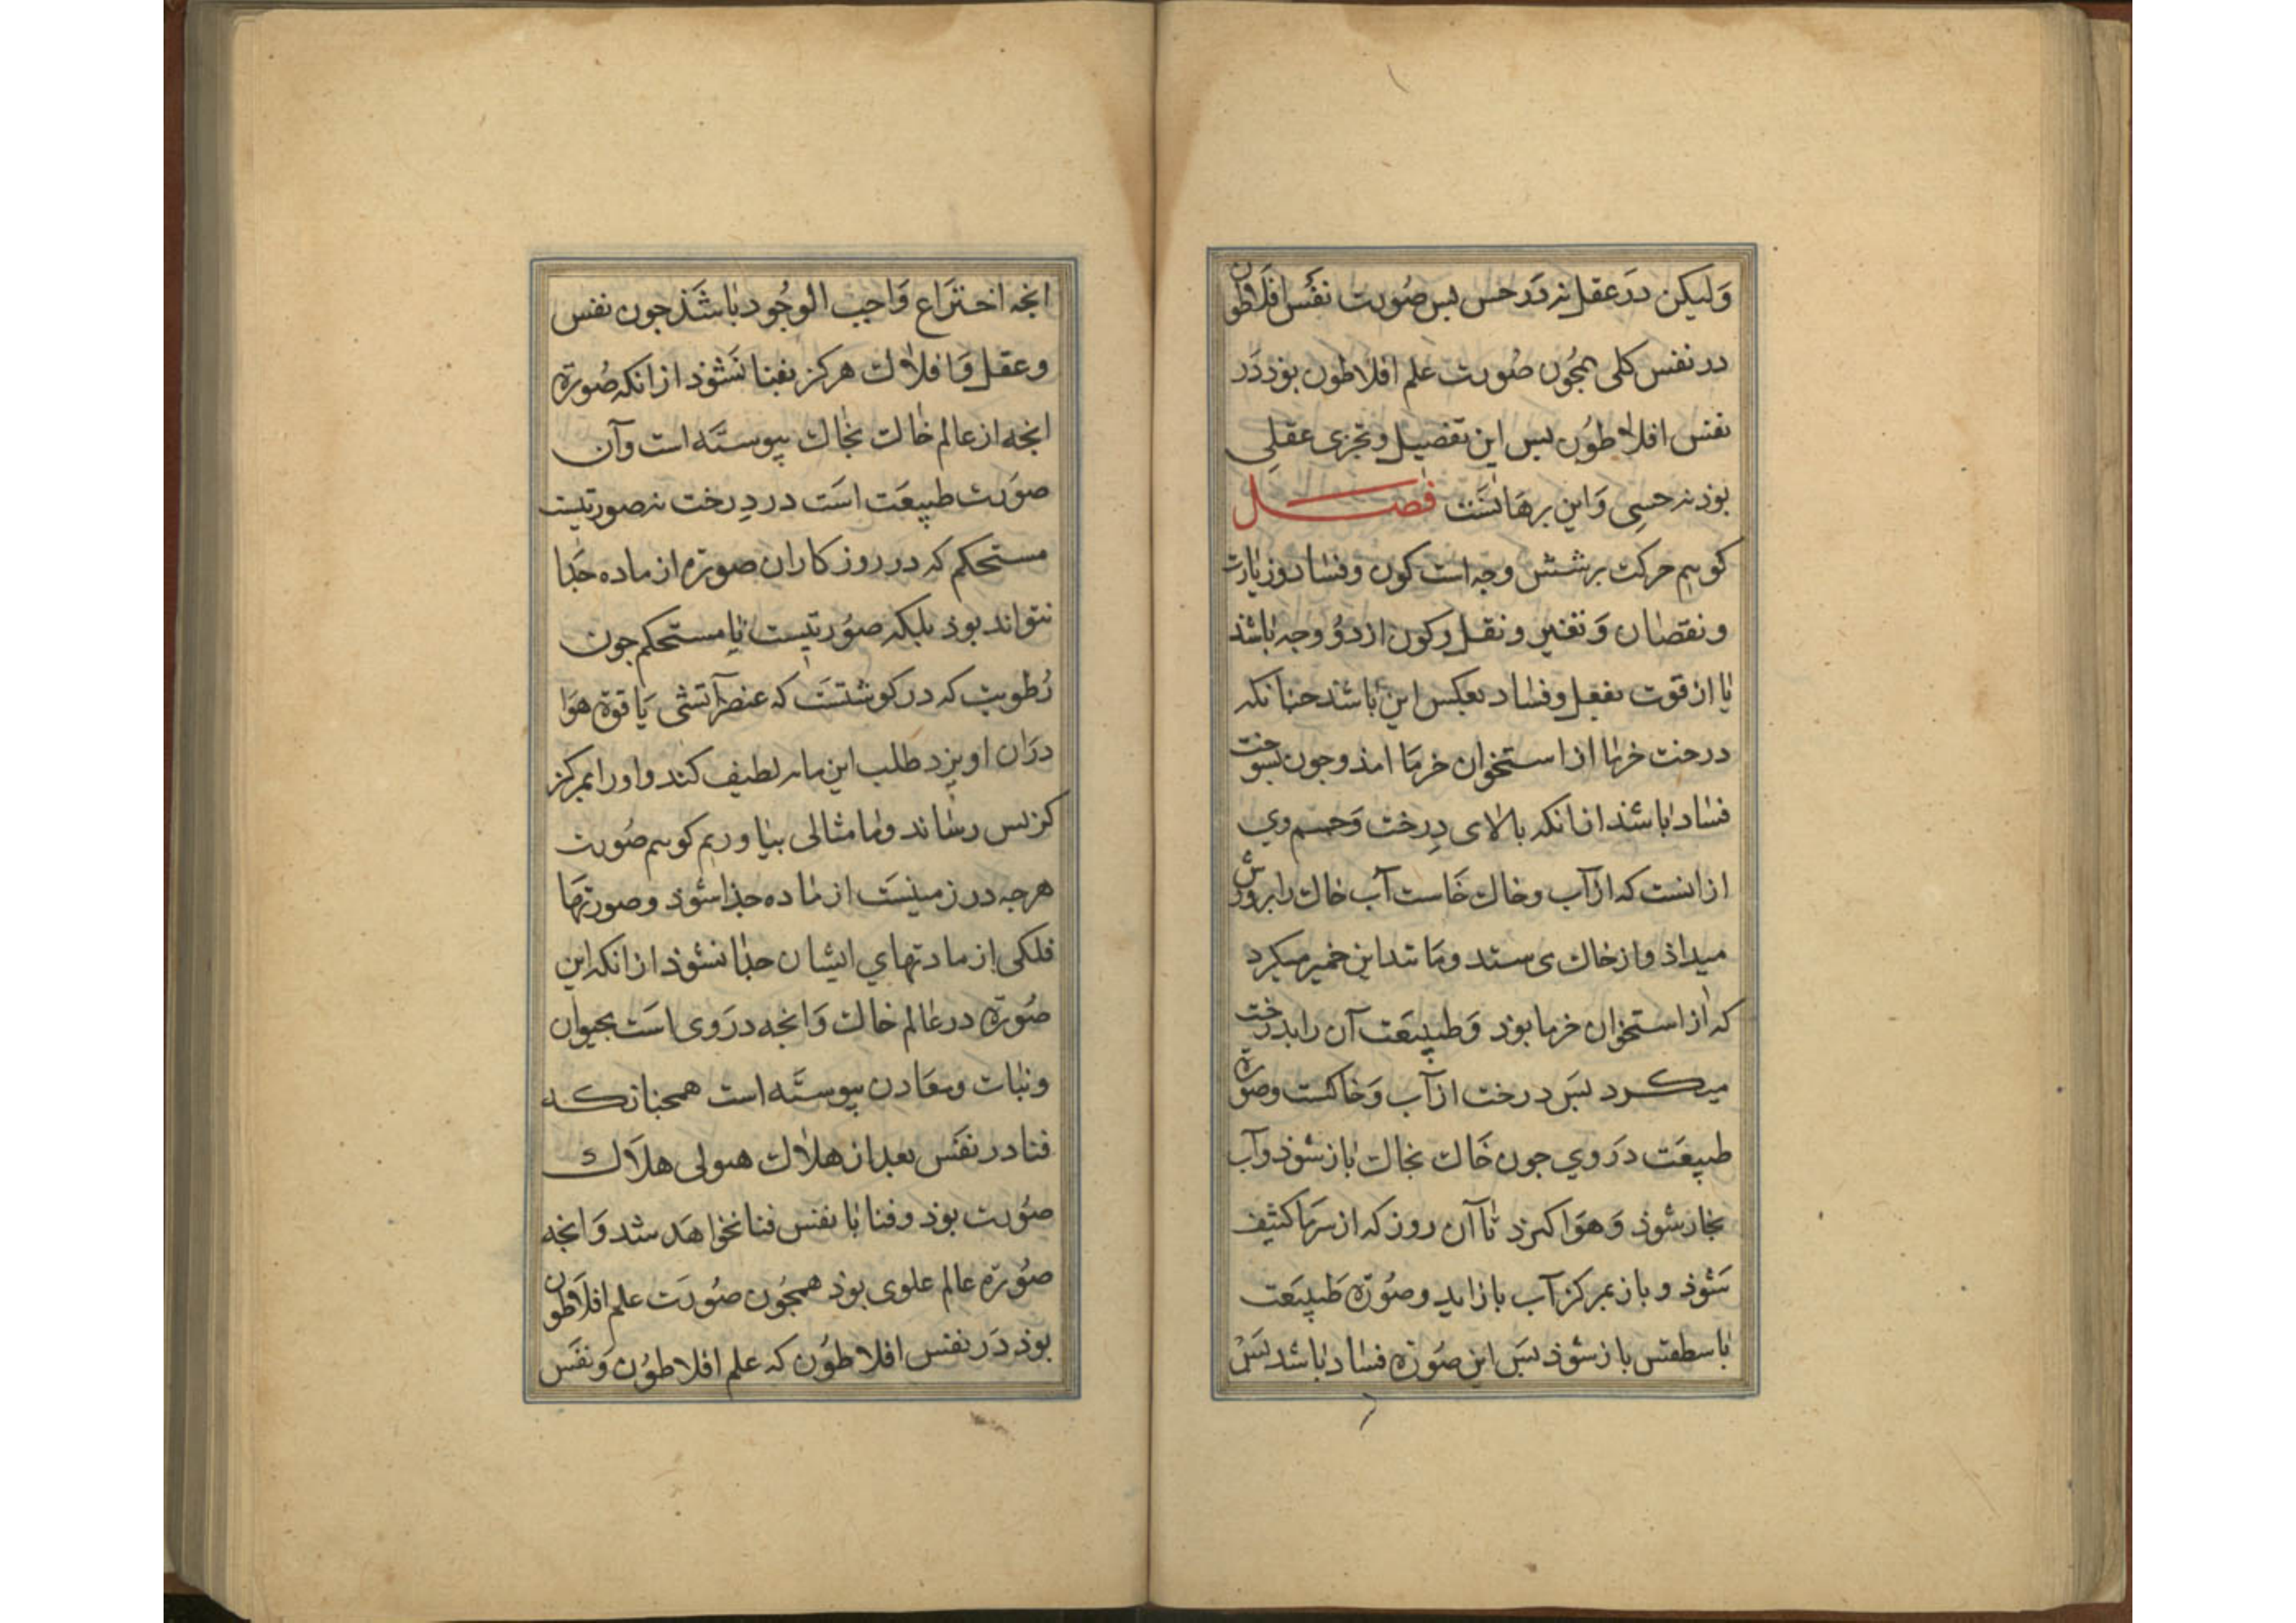 ولیکن در عقل نه در حس بس صورت نفس افلاطون
در نفس کلی همجون صورت علم افلاطون بوذ در
نفس افلاطون بس این تفصیل و تجزی عقلی
بوذ نه حسی و این برهانست فصل
کوییم حرکت بر شش وجه است کون و فساد و زیادت
و نقصان و تغییر و نقل و کون از دو وجه باشذ
یا از قوت بفعل و فساد بعکس این باشذ جنانکه
درخت خرما از استخوان خرما امذ و جون بسوخت
فساد باشذ از انکه بالای درخت و جسم وی
از انست که از آب و خاك خاست آب خاك را پرورش
میداذ و از خاك می ستد و مانند این خمیر میکرد
که از استخوان خرما بوذ و طبیعت آن را بدرخت
میکرد بس درخت از آب و خاکست و صورة
طبیعت در وی جون خاك بخاك باز شوذ و آب
بخار شوذ و هوا کیرد تا آن روز که از سرما کثیف
شوذ و باز بمرکز آب باز اید و صورة طبیعت
باسطقس باز شوذ بس این صورة فساد باشد بس
انجه اختراع واجب الوجود باشذ جون نفس
و عقل و افلاك هرکز بفنا نشوذ از انکه صورة
انجه از عالم خاك بخاك پیوسته است و آن
صورت طبیعت است در درخت نه صورتیست
مستحکم که در روزکاران صورة از ماده جذا
نتواند بوذ بلکه صورتیست نا مستحکم جون
رطوبت که در کوشتست که عنصر آتشی یا قوة هوا
دران اویزد طلب این مایه لطیف کند و اورا بمرکز
کز بس رساند و ما مثالی بیاوریم کوییم صورت
هرجه در زمینست از ماده جذا شوذ و صورتهای
فلکی از مادتهای ایشان جذا نشوذ از انکه این
صورة در عالم خاك و انجه در وی است بحیوان
و نبات و معادن پیوسته است همجنانکه
فنا در نفس بعد از هلاك هیولی هلاك
صورت بوذ و فنا با نفس فنا نخواهد شد و انجه
صورة عالم علوی بوذ همجون صورت علم افلاطون
بوذ در نفس افلاطون که علم افلاطون و نفس